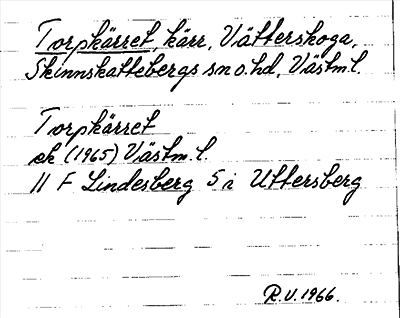 Torpkärret, kärr, Vätterskoga,
Skinnskattebergs sn o. hd, Västm.l.
Torpkärret
ek (1965) Västm.l.
11 F Lindesberg 5 i Uttersberg
R.V. 1966.